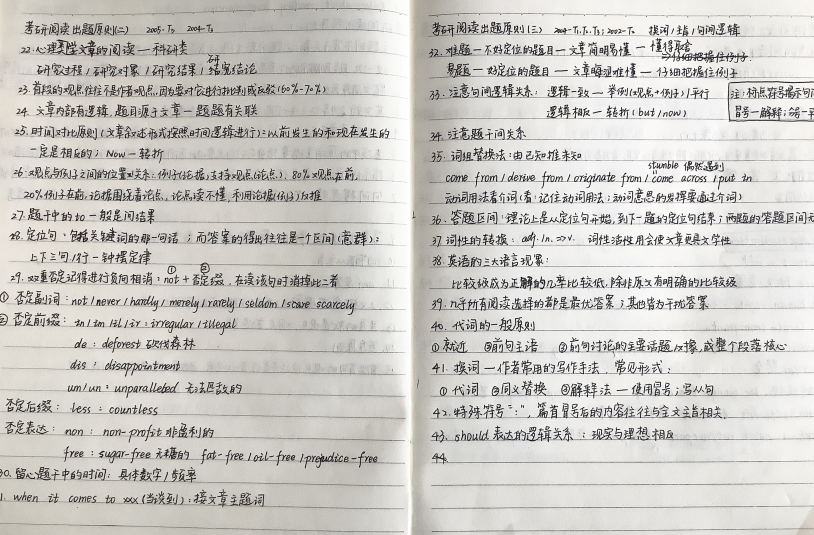 考研阅读出题原则(二) 2005-T3 2004-T3
22.心理类型文章的阅读—科研类
研究过程/研究对象/研究结果/研究结论
23.首段的观点往往不是作者观点,因他要对它进行批判或反驳(60%-70%)
24.文章内部有逻辑,题目源于文章—题题有关联
25.时间对比原则(文章叙述形式按照时间逻辑进行):以前发生的和现在发生的
一定是相反的;Now—转折
26.观点与例子之间的位置关系:例子(论据)支持观点(论点),80%观点在前,
20%例子在前,论据围绕着论点,论点读不懂,利用论据(例子)反推
27.题干中的to一般是问结果
28.定位句:包括关键词的那一句话;而答案的得出往往是一个区间(意群):
上下三句/行一钟摆定律
29.双重否定记得进行负向相消:①not+②否定缀,在读该句时消掉此二者
①否定副词:not/never/hardly/merely/rarely/seldom/scarcely
②否定前缀:in/im/il/ir:irregular/illegal
de:deforest 砍伐森林
dis:disappointment
um/un:unparalleled 无法匹敌的
否定后缀:less:countless
否定表达:non:non-profit 非盈利的
free:sugar-free 无糖的 fat-free/oil-free/prejudice-free
30.留心题干中的时间:具体数字/频率
1. when it comes to xxx(当谈到):接文章主题词
考研阅读出题原则(三) 2004-T1.T2.T3;2002-T2 换词/主旨/句间逻辑
32.难题—不好定位的题目—文章简明易懂—懂得取舍
易题—好定位的题目—文章晦涩难懂—仔细把握住例子
33.注意句间逻辑关系:逻辑一致—举例(观点+例子)/平行
逻辑相反—转折(but/now)
注:特点符号揭示句间
冒号—解释;分号—平
34.注意题干间关系
35.词组替换法:由已知推未知
stumble 偶然遇到
come from/derive from/originate from/come across/put in
动词用法看介词(看:记住动词用法:动词意思的发挥要通过介词)
36.答题区间:理论上是从定位句开始,到下一题的定位句结束;两题的答题区间无
37.词性的转换:adj./n.⇒v. 词性活性用会使文章更具文学性
38.英语的三大语言现象:
比较级成为正解的几率比较低,除非原文有明确的比较级
39.几乎所有阅读选择的都是最优答案;其他皆为干扰答案
40.代词的一般原则
①就近 ②前句主语 ③前句讨论的主要话题/对像,或整个段落核心
41.换词—作者常用的写作手法,常见形式:
①代词 ②同义替换 ③解释法—使用冒号;写从句
42.特殊符号":",篇首冒号后的内容往往与全文主旨相关.
43.should表达的逻辑关系:现实与理想相反
44.